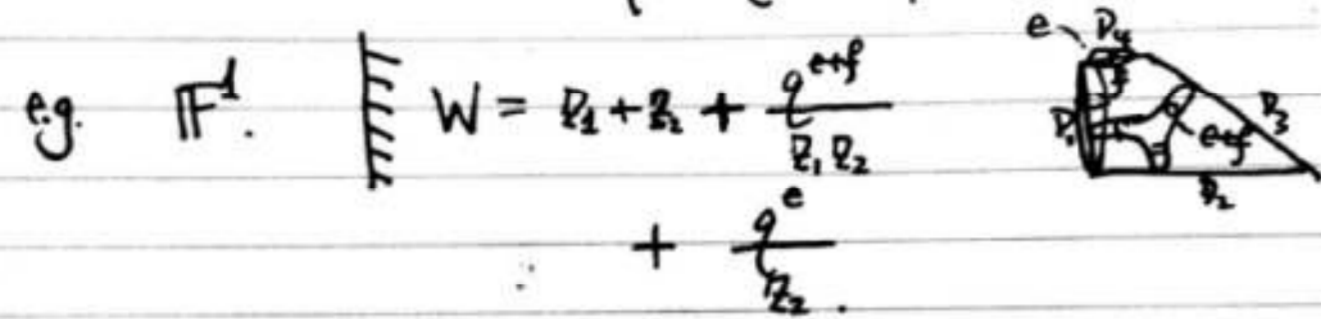 e.g. 𝔽¹. W = z₁ + z₂ + q^{e+f}/z₁z₂
+ q^e/z₂.
e D₄
D₁ e+f D₃
D₂